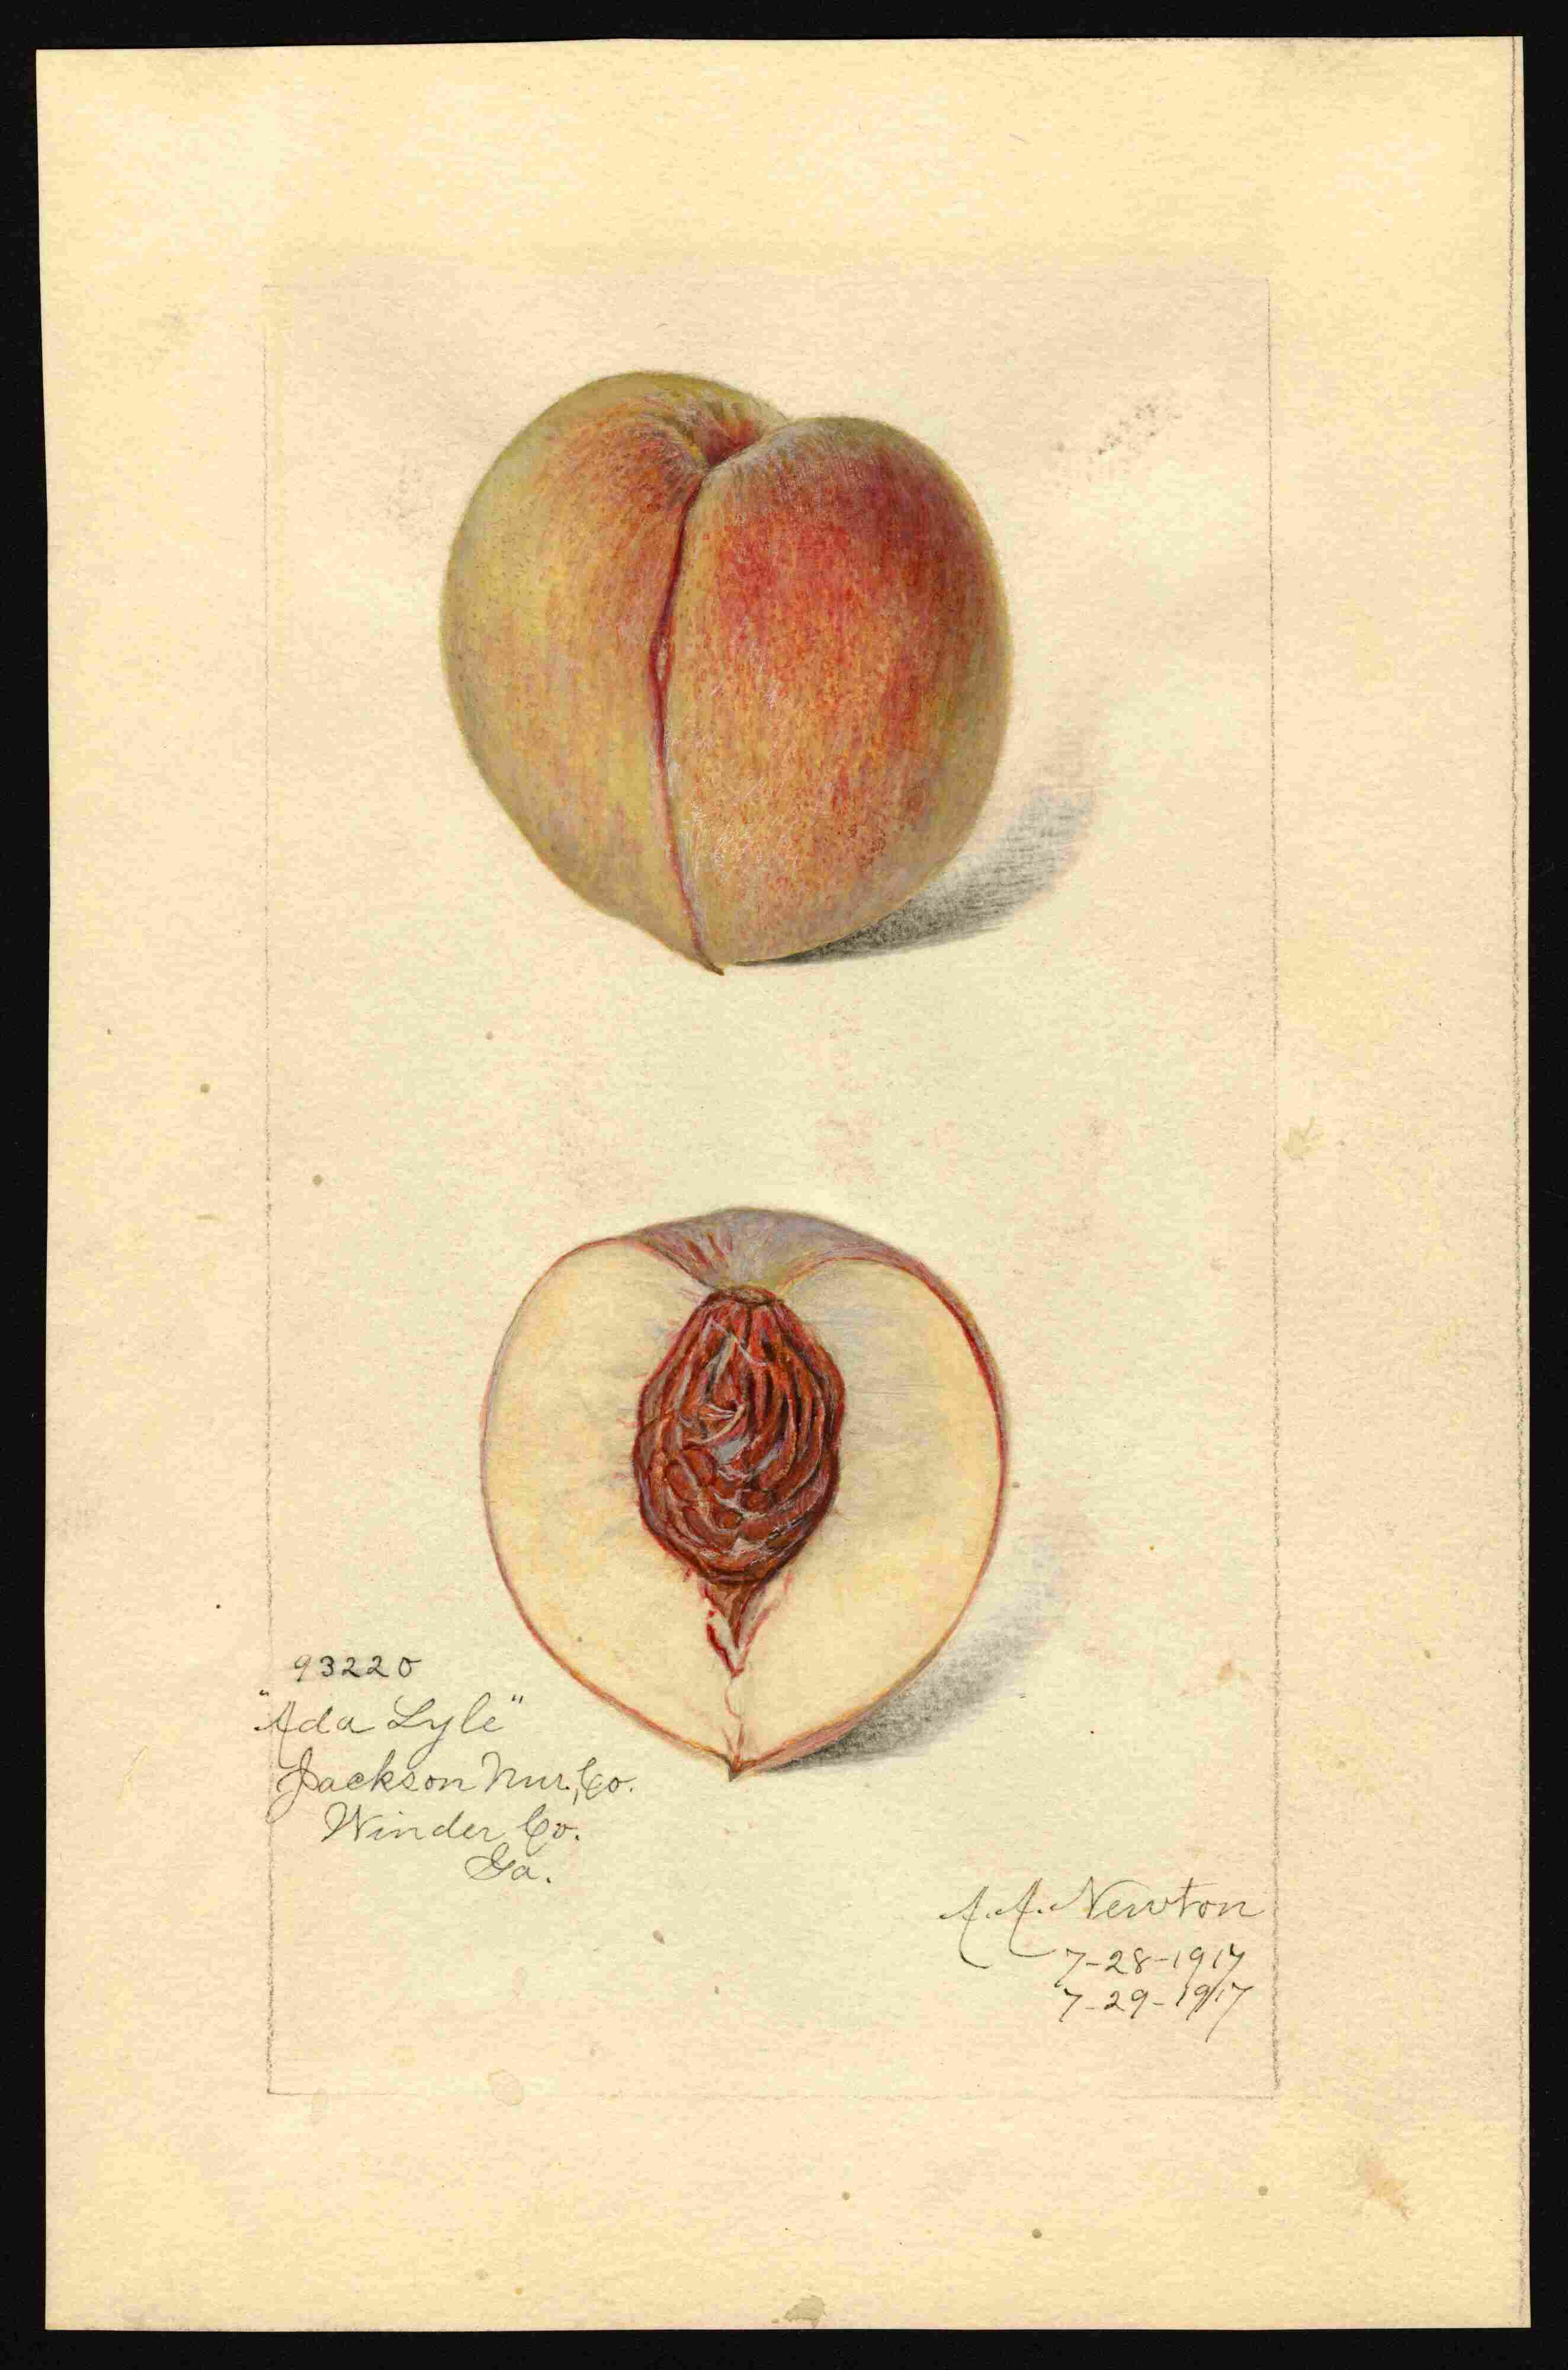 93220
"Ada Lyle"
Jackson Nur. Co.
Winder Co.
Ga.
A. A. Newton
7-28-1917
7-29-1917